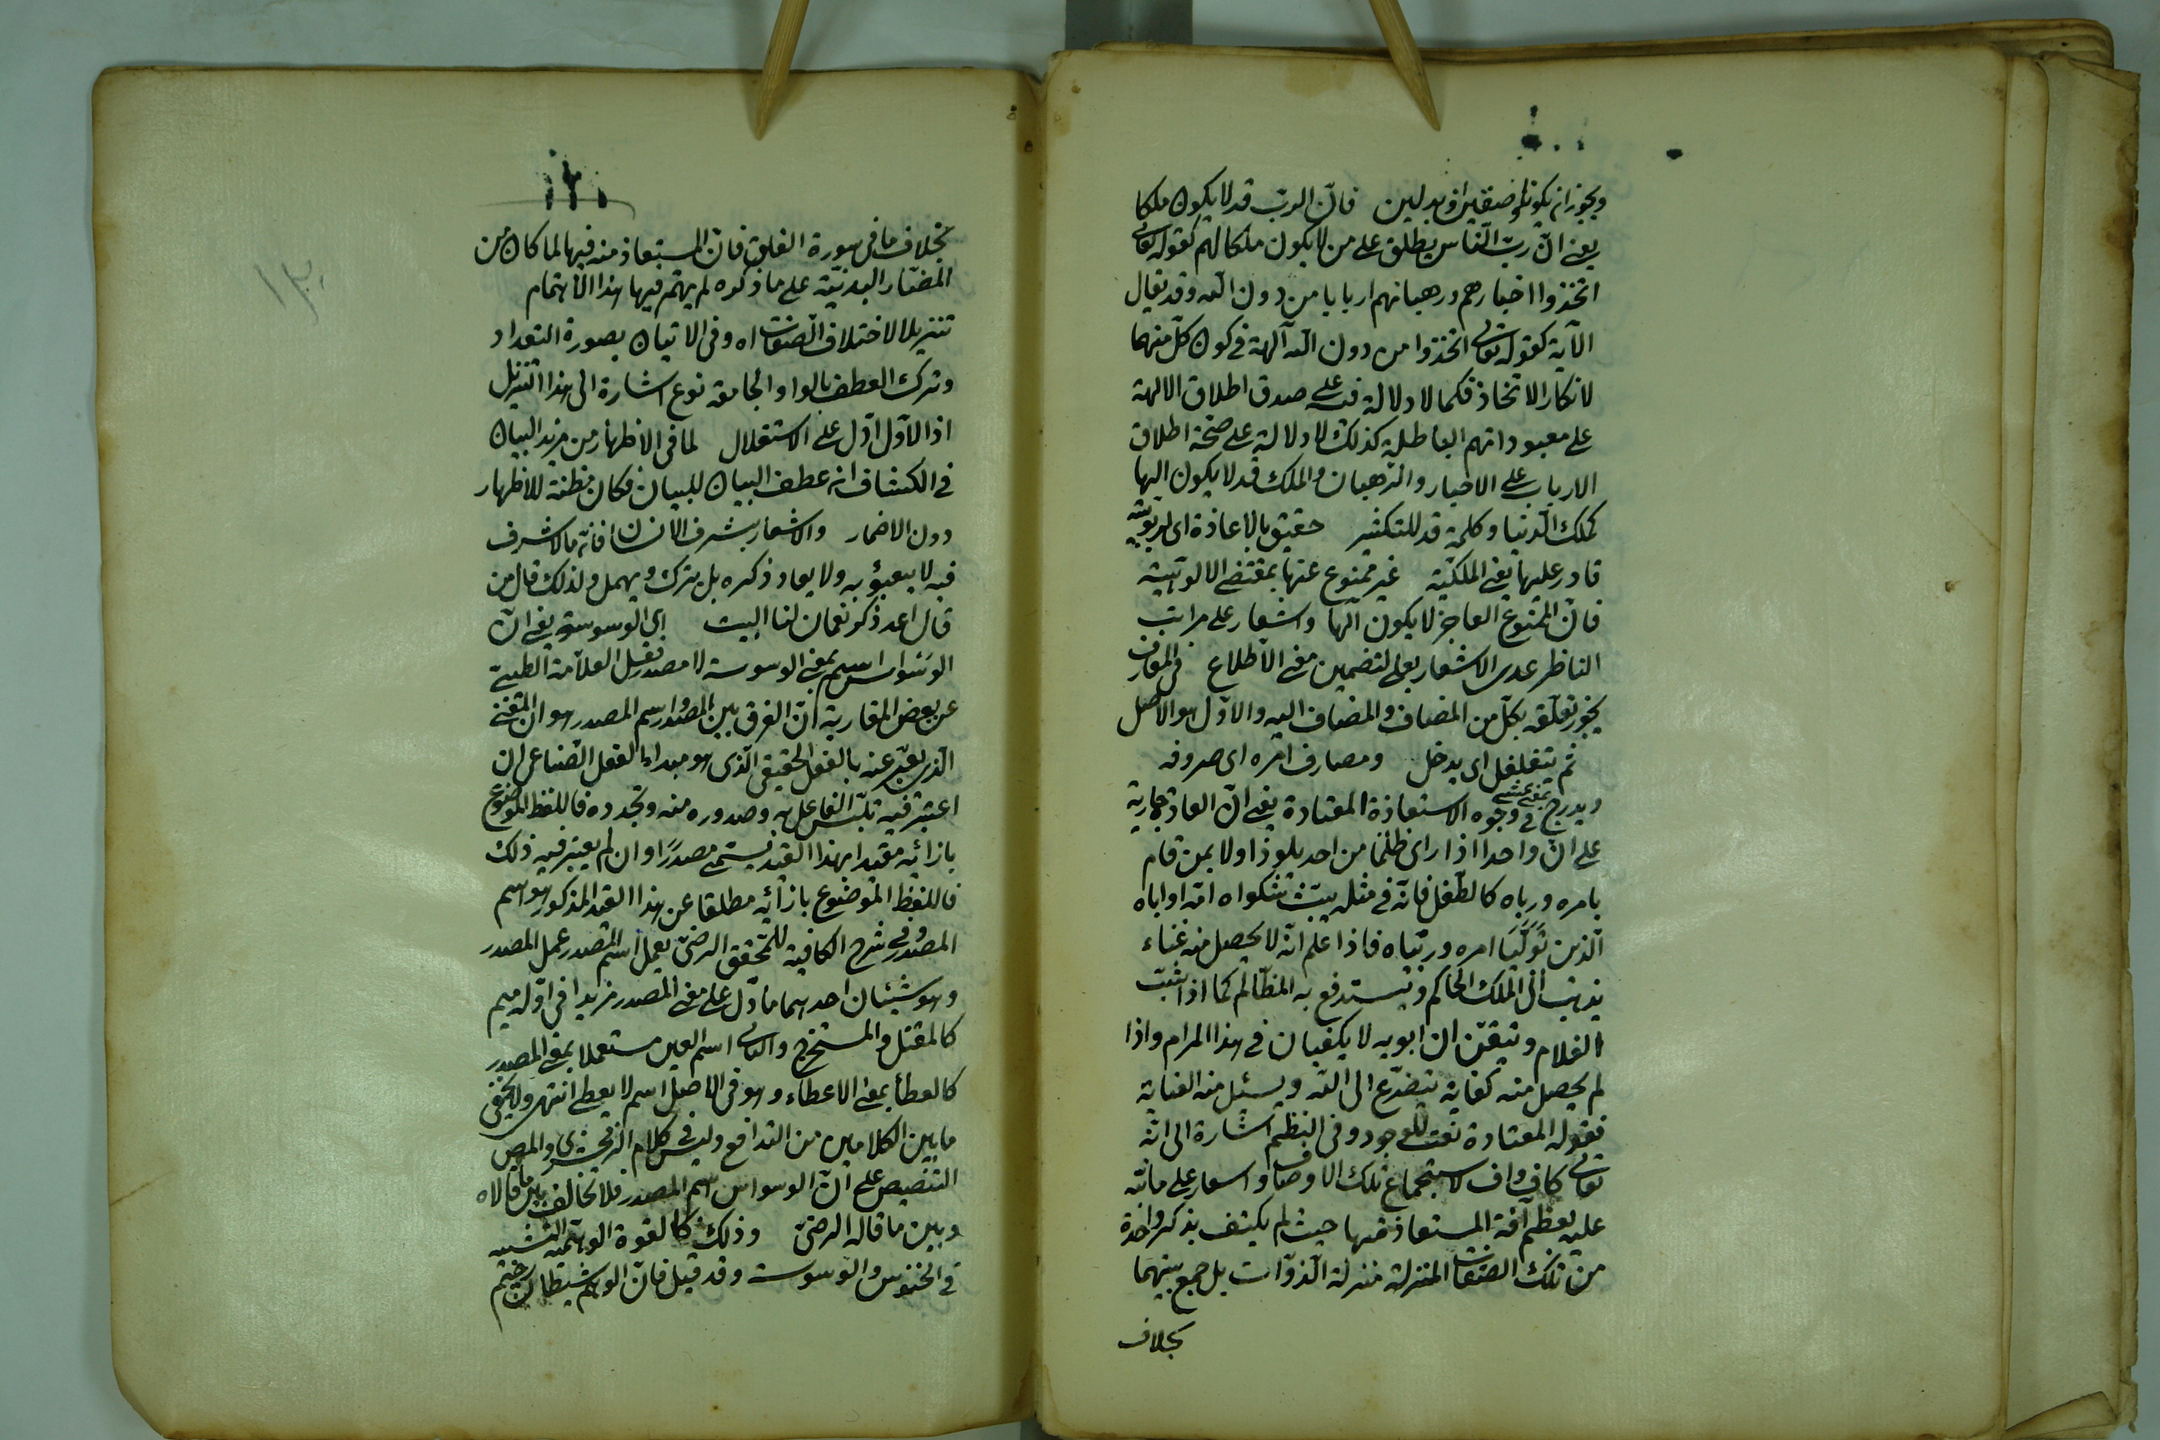 ويجوز ان يكونا وصفين او بدلين فانّ الربّ قد لا يكون ملكا
يعنى انّ ربّ النّاس يطلق على من لا يكون ملكا لهم كقوله تعالى
اتخذوا احبارهم ورهبانهم اربابا من دون اللّه وقد يقال
الآية كقوله تعالى اتخذوا من دون اللّه آلهة فى كون كلّ منهما
لانكار الاتخاذ فكما لا دلالة فيه على صدق اطلاق الالهة
على معبوداتهم الباطلة كذلك لا دلالة على صحّة اطلاق
الارباب على الاحبار والرّهبان والملك قد لا يكون الها
كملك الدّنيا وكلمة قد للتكثير حقيق بالاعاذة اى لربوبيته
قادر عليها يعنى الملكيّة غير ممنوع عنها بمقتضى الالوهيّة
فانّ الممنوع العاجز لا يكون آلها واشعار على مراتب
الناظر عدى الاشعار بعلى لتضمين معنى الاطلاع فى المعارف
يجوز تعلّقه بكلّ من المضاف والمضاف اليه والاوّل هو الاصل
ثم يتغلغل اى يدخل ومصارف امره اى صروفه
ويدرج فى وجوه الاستعاذة المعتادة يعنى انّ العادة جارية
على انّ واحدا اذا راى ظلما من احد يلوذ اولا بمن قام
بامره ورباه كالطّفل فانّه فى مثله يبثّ شكواه امّه او اباه
الّذين تولّيا امره وربّياه فاذا علم انّه لا يحصل منه غناء
يذهب الى الملك الحاكم ويستدفع به المظالم كما اذا شبّ
الغلام وتيقّن ان ابويه لا يكفيان فى هذا المرام واذا
لم يحصل منه كفاية يتضرّع الى اللّه ويسئل منه العناية
فقوله المعتادة نعت للوجوه وفى النظم اشارة الى انّه
تعالى كاف واف لاستجماع تلك الاوصاف واشعار على مانبّه
عليه بعظم آفة المستعاذ منها حيث لم يكتف بذكر واحدة
من تلك الصّفات المنزلة منزلة الذوات بل جمع بينهما
بخلاف
١٢١
١٢٠
بخلاف ما فى سورة الفلق فانّ المستعاذ منه فيها لما كان من
المضارّ البدنيّة على ما ذكره لم يهتمّ فيها هذا الاهتمام
تنزيلا لاختلاف الصّفات اه وفى الاتيان بصورة التعداد
وترك العطف بالواو الجامعة نوع اشارة الى هذا التنزيل
اذ الاوّل ادلّ على الاستقلال لما فى الاظهار من مزيد البيان
فى الكشاف انه عطف البيان للبيان فكان مظنة للاظهار
دون الاضمار والاشعار بشرف الانسان فانّه ما لا شرف
فيه لا يعبؤ به ولا يعاد ذكره بل يترك ويهمل ولذلك قال من
قال اعد ذكر نعمان لنا البيت اى الوسوسة يعنى انّ
الوَسْواس اسم بمعنى الوسوسة لا مصدر نقل العلّامة الطيبى
عن بعض المغاربة انّ الفرق بين المصدر واسم المصدر هو ان المعنى
الّذى يعبّر عنه بالفعل الحقيقى الّذى هو مبدا للفعل الصّناعى ان
اعتبر فيه تلبّس الفاعل به وصدوره منه وتجدده فاللفظ الموضوع
بازائه مقيدا بهذا القيد يسمّى مصدرًا وان لم يعتبر فيه ذلك
فاللفظ الموضوع بازائه مطلقا عن هذا القيد المذكور هو اسم
المصدر وفى شرح الكافية للمحقّق الرضىّ يعمل اسم المصدر عمل المصدر
وهو شيئان احدهما ما دلّ على معنى المصدر مزيدا فى اوّله ميم
كالمقتل والمستخرج والثانى اسم العين مستعملا بمعنى المصدر
كالعطاء بمعنى الاعطاء وهو فى الاصل اسم لما يعطى انتهى ولا يخفى
ما بين الكلامين من التدافع وليس فى كلام الزمخشرى والمص
التنصيص على انّ الوسواس اسم المصدر فلا تخالف بين ما قالاه
وبين ما قاله الرضىّ وذلك كالقوة الوهميّة التشبيه
فى الخنوس والوسوسة وقد قيل فانّ الوهم شيطان